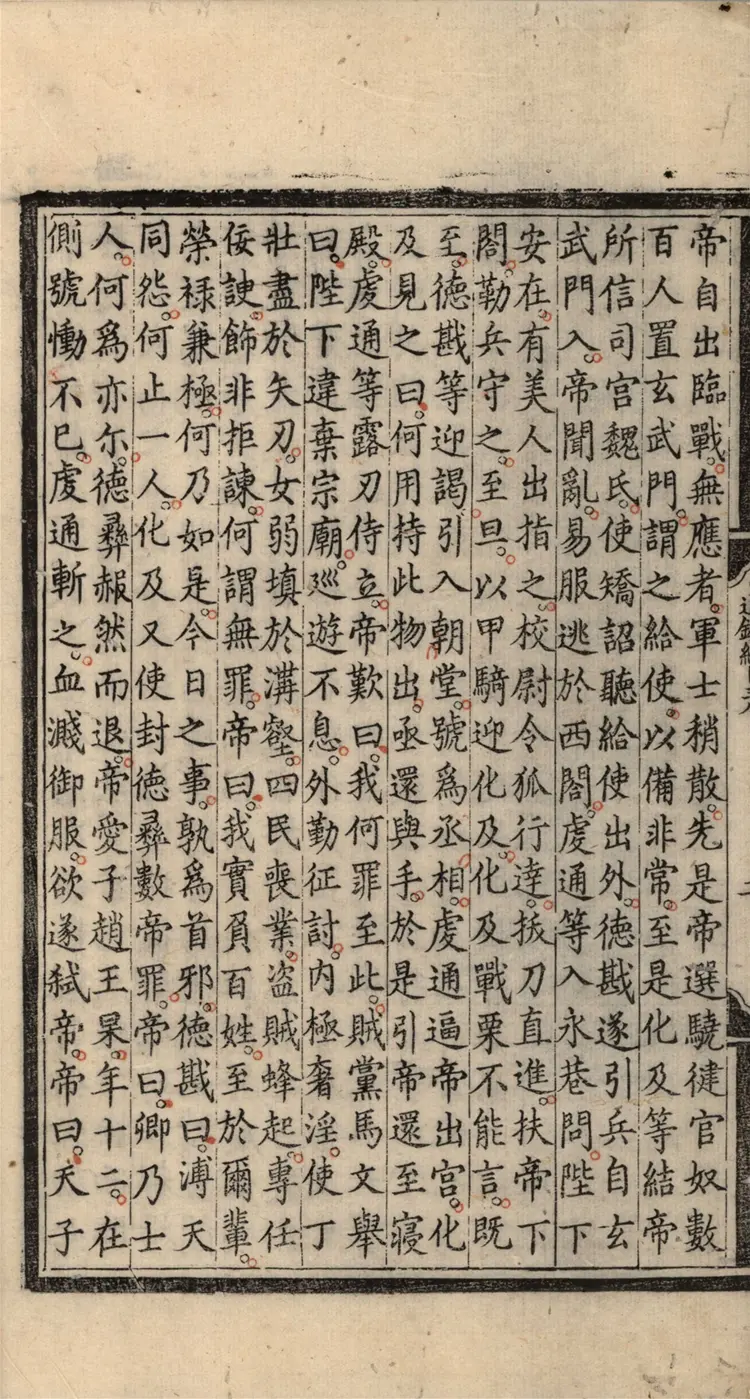 帝自出臨戰。無應者。軍士稍散。先是帝選驍徤官奴數
百人置玄武門。謂之給使。以備非常。至是化及等結帝
所信司宮魏氏。使矯詔聽給使出外。德戡遂引兵自玄
武門入。帝聞亂。易服逃於西閤。虔通等入永巷。問陛下
安在。有美人出指之。校尉令狐行達。拔刀直進。扶帝下
閤。勒兵守之。至旦。以甲騎迎化及。化及戰栗不能言。既
至。德戡等迎謁。引入朝堂。號爲丞相。虔通逼帝出宮。化
及見之曰。何用持此物出。亟還與手。於是引帝還至寢
殿。虔通等露刃侍立。帝歎曰。我何罪至此。賊黨馬文舉
曰。陛下違棄宗廟。巡遊不息。外勤征討。內極奢淫。使丁
壯盡於矢刃。女弱填於溝壑。四民喪業。盜賊蜂起。專任
佞諛。飾非拒諫。何謂無罪。帝曰。我實負百姓。至於爾輩。
榮祿兼極。何乃如是。今日之事。孰爲首邪。德戡曰。溥天
同怨。何止一人。化及又使封德彝數帝罪。帝曰。卿乃士
人。何爲亦尔。德彝赧然而退。帝愛子趙王杲。年十二。在
側號慟不已。虔通斬之。血濺御服。欲遂弑帝。帝曰。天子